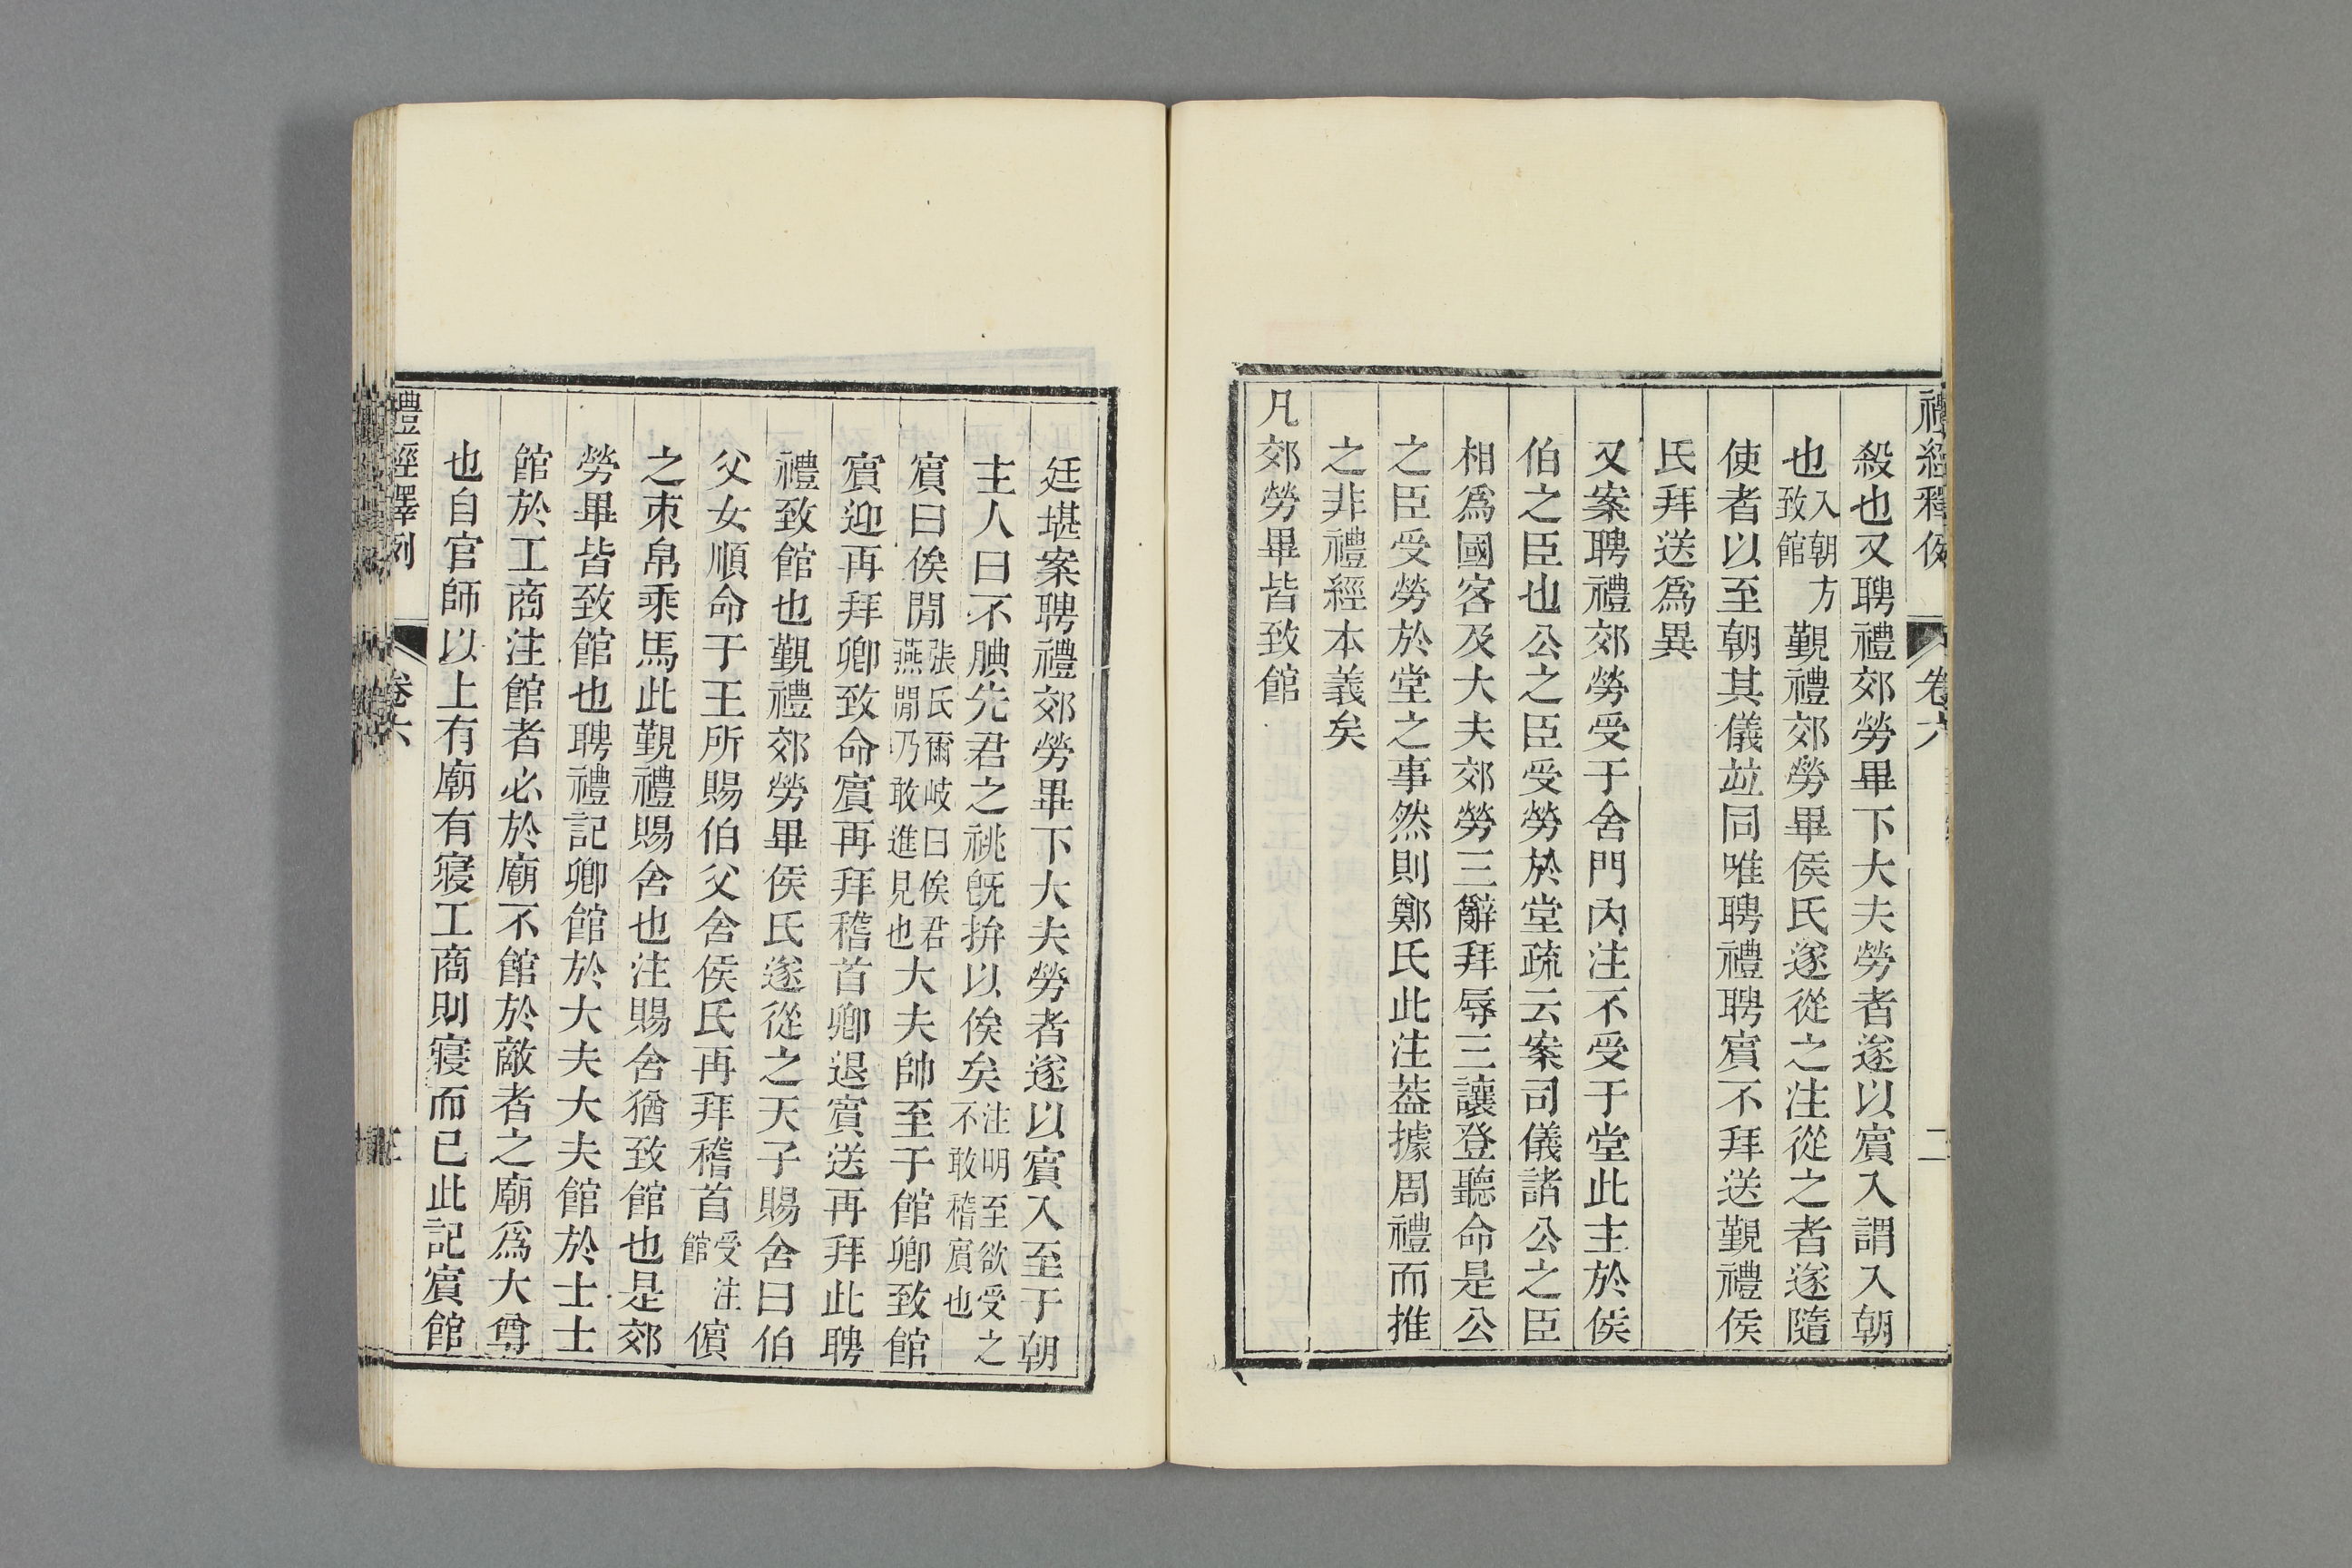 禮經釋例
卷六
二
殺也又聘禮郊勞畢下大夫勞者遂以賔入謂入朝
也入朝方致館覲禮郊勞畢侯氏遂從之注從之者遂隨
使者以至朝其儀竝同唯聘禮聘賔不拜送覲禮侯
氏拜送爲異
又案聘禮郊勞受于舍門內注不受于堂此主於侯
伯之臣也公之臣受勞於堂疏云案司儀諸公之臣
相爲國客及大夫郊勞三辭拜辱三讓登聽命是公
之臣受勞於堂之事然則鄭氏此注葢據周禮而推
之非禮經本義矣
凡郊勞畢皆致館
廷堪案聘禮郊勞畢下大夫勞者遂以賔入至于朝
主人曰不腆先君之祧旣拚以俟矣注明至欲受之不敢稽賔也
賔曰俟閒張氏爾岐曰俟君燕閒乃敢進見也大夫帥至于館卿致館
賔迎再拜卿致命賔再拜稽首卿退賔送再拜此聘
禮致館也覲禮郊勞畢侯氏遂從之天子賜舍曰伯
父女順命于王所賜伯父舍侯氏再拜稽首受注館儐
之束帛乘馬此覲禮賜舍也注賜舍猶致館也是郊
勞畢皆致館也聘禮記卿館於大夫大夫館於士士
館於工商注館者必於廟不館於敵者之廟爲大尊
也自官師以上有廟有寢工商則寢而已此記賔館
禮經釋例
卷六
三